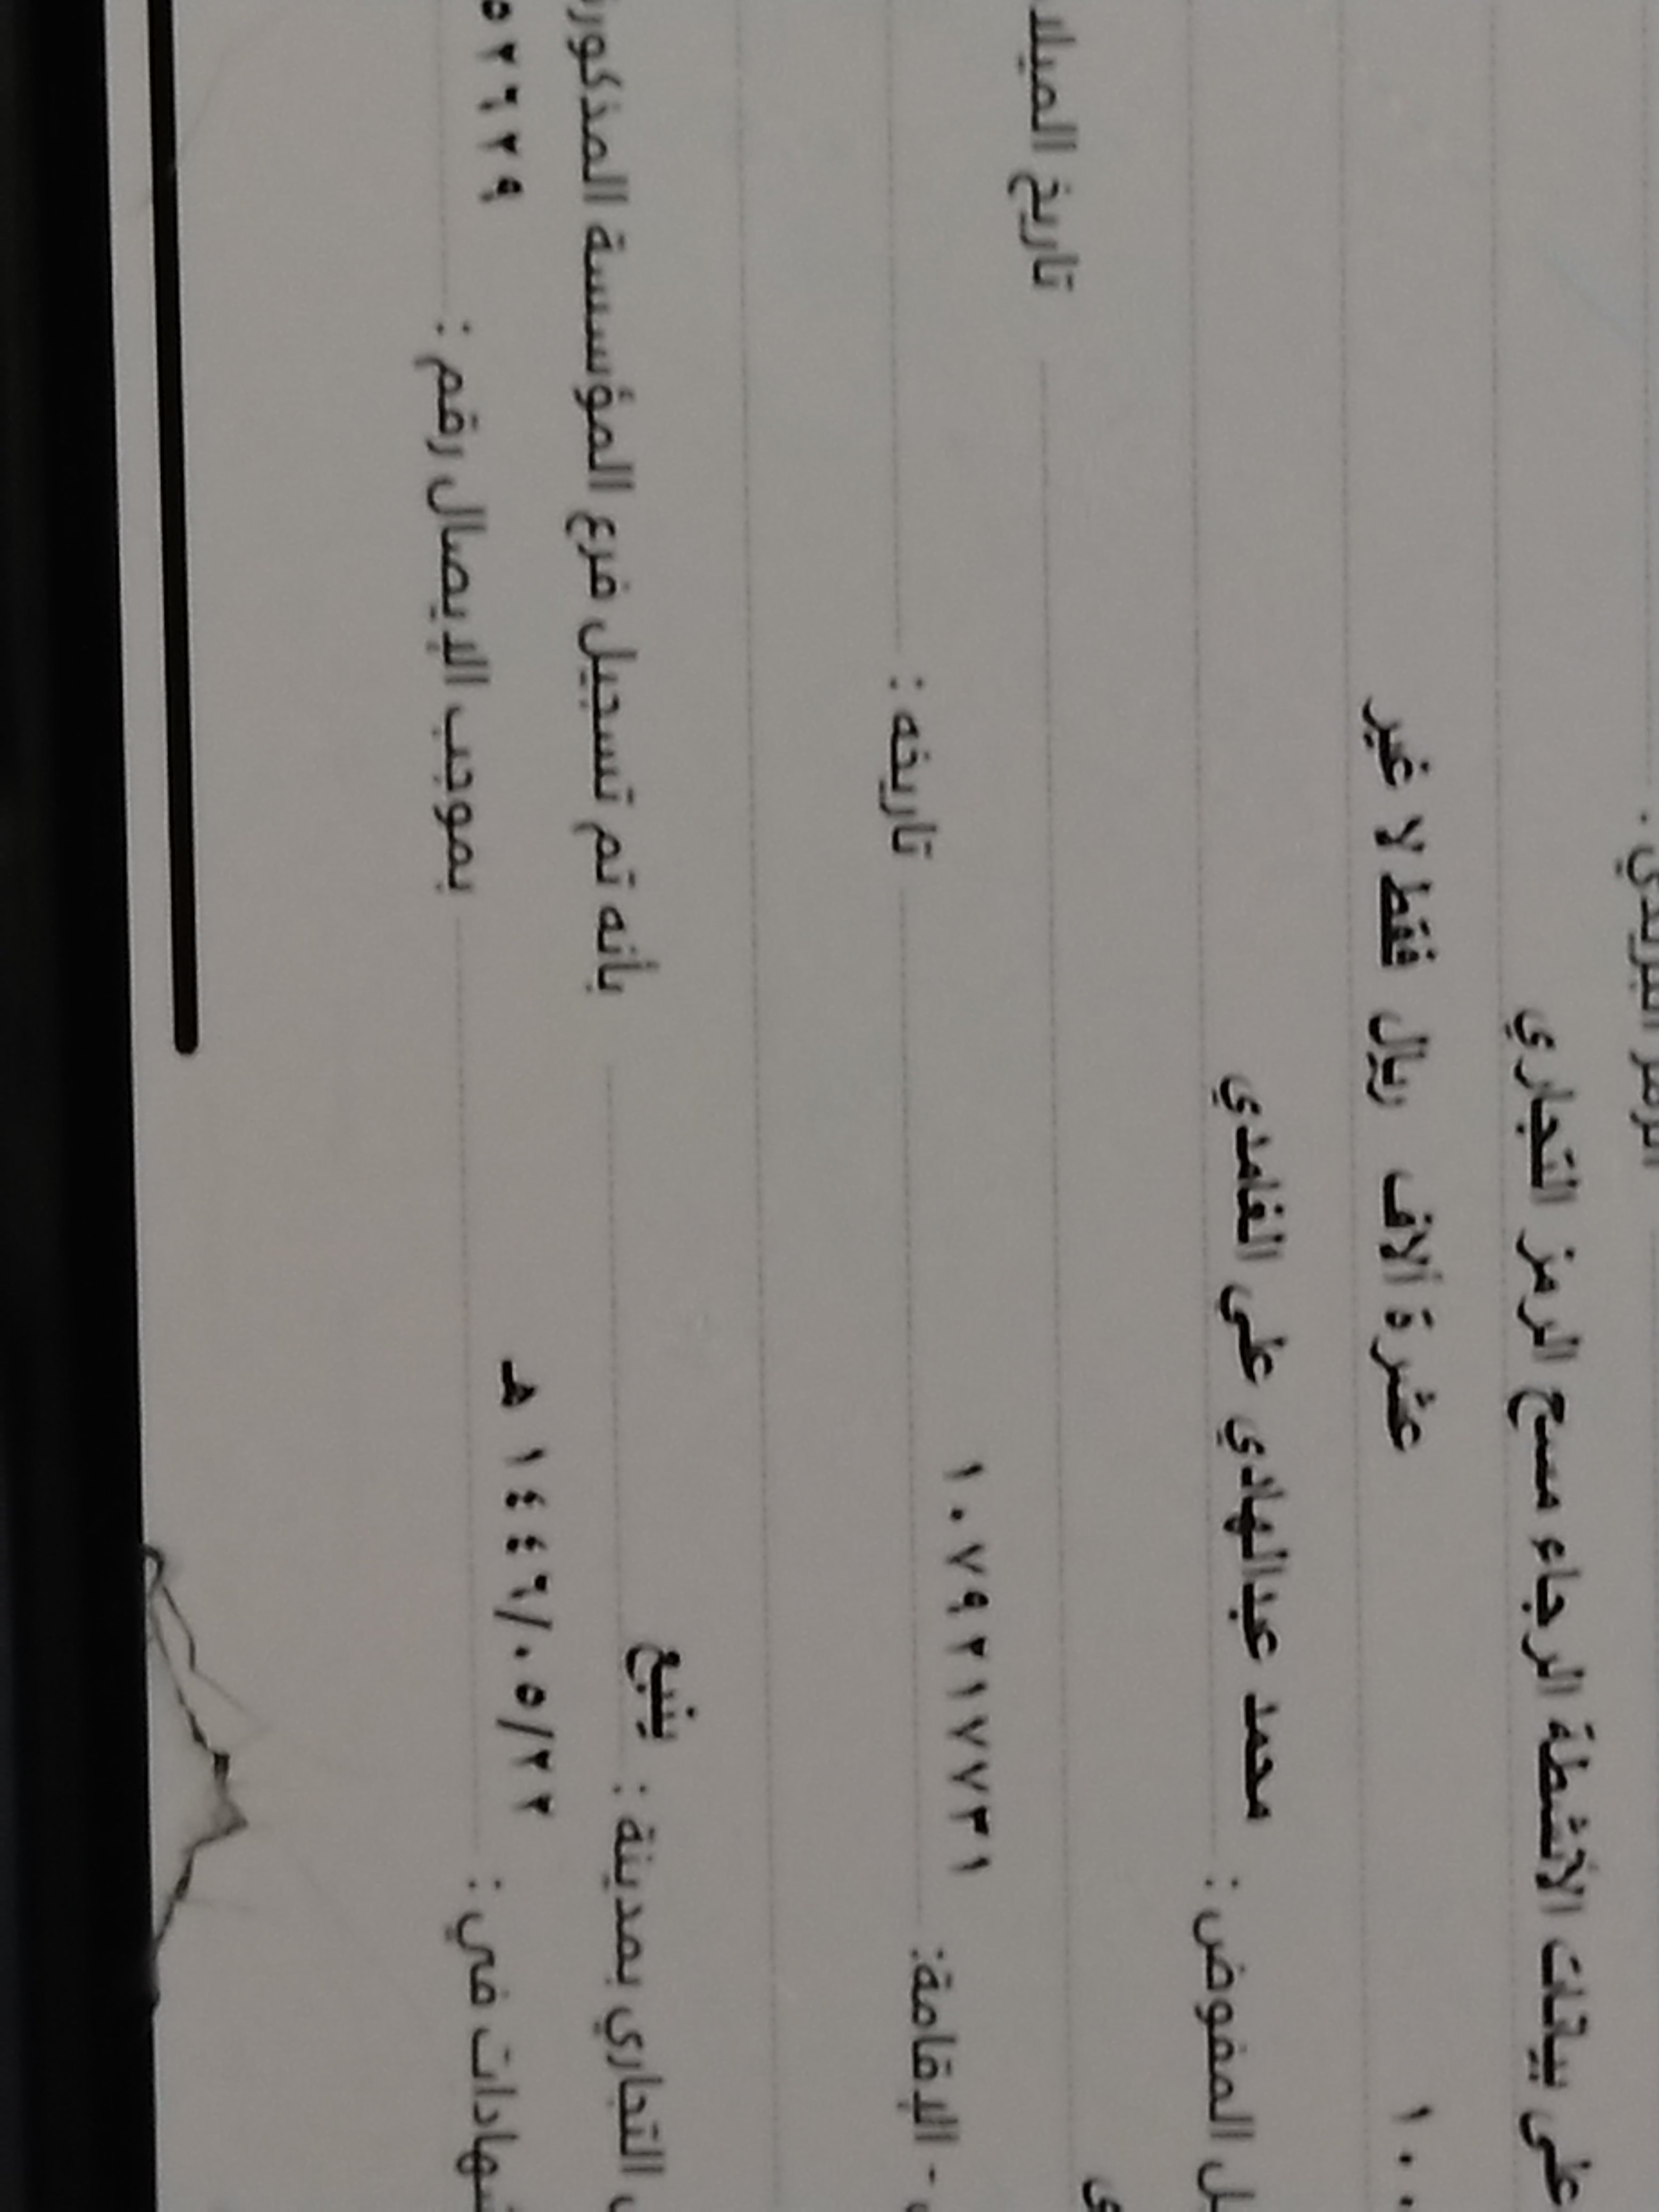 الرمز البريدي .
على بيانات الأنشطة الرجاء مسح الرمز التجاري
١٠٠ عشرة آلاف ريال فقط لا غير
المفوض : محمد عبدالهادي على الغامدي
تاريخ الميلاد
- الإقامة: ١٠٧٩٢١٧٧٣١ تاريخه :
التجاري بمدينة : ينبع بأنه تم تسجيل فرع المؤسسة المذكورة
في : ١٤٤٦/٠٥/٢٢ هـ بموجب الإيصال رقم : ٥٢٦٢٩